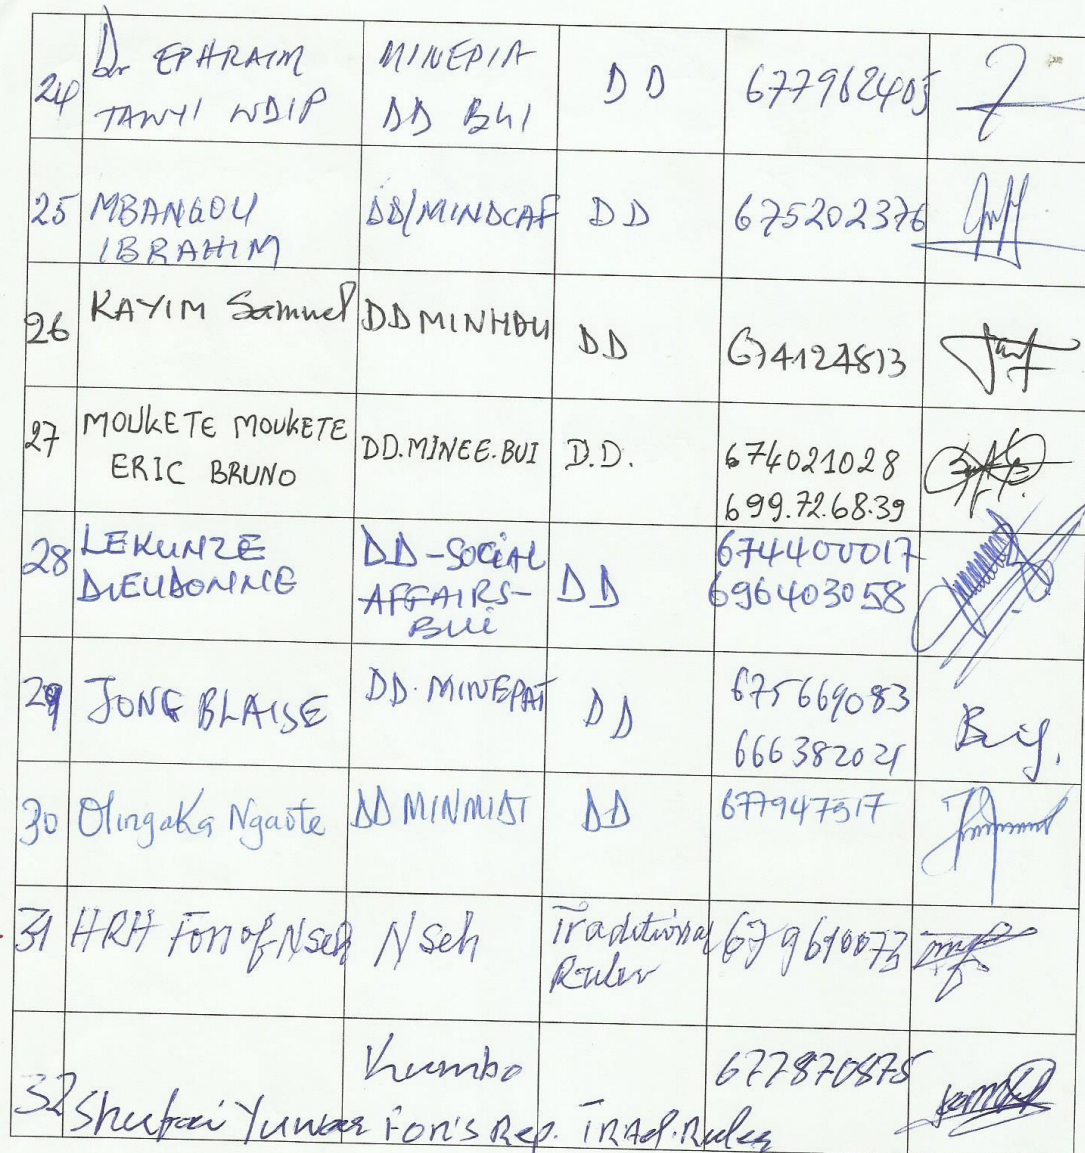 24 Dr EPHRAIM TANYI NDIP MINEPIA DD BUI DD 677962405
25 MBANGOU IBRAHIM DD/MINDCAF DD 675202376
26 KAYIM Samuel DD MINHDU DD 674124813
27 MOUKETE MOUKETE ERIC BRUNO DD.MINEE.BUI D.D. 674021028 699.72.68.39
28 LEKUNZE DIEUDONNE DD-SOCIAL AFFAIRS-BUI DD 674400017 696403058
29 JONG BLAISE DD. MINEPAT DD 675669083 666382021
30 Olingaka Ngaote DD MINMIDT DD 677947517
31 HRH Fon of Nseh Nseh Traditional Ruler 679610073
32 Kumbo 677870875
Shufai Yuwar Fon's Rep. TRAd. Ruler